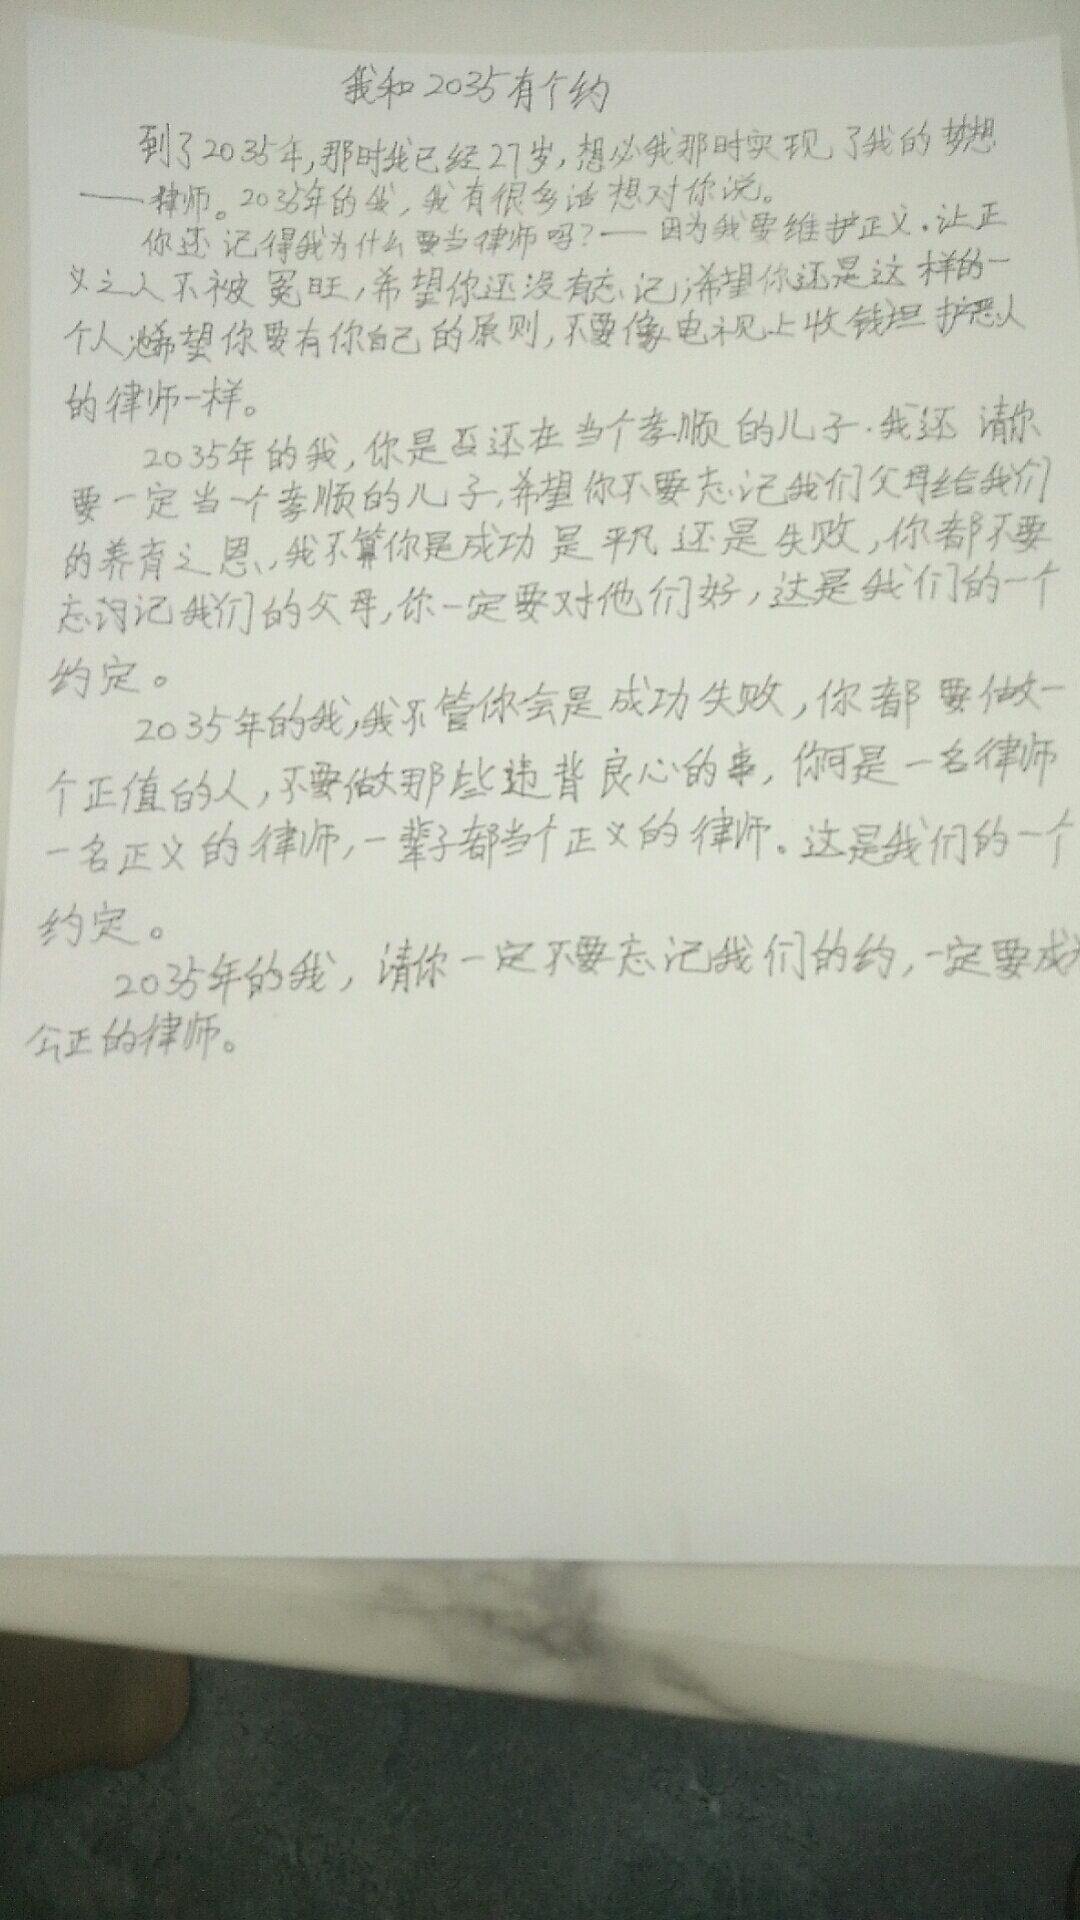 我和2035有个约
到了2035年,那时我已经27岁,想必我那时实现了我的梦想
——律师。2035年的我,我有很多话想对你说。
你还记得我为什么要当律师吗?——因为我要维护正义.让正
义之人不被冤旺,希望你还没有忘记;希望你还是这样的一
个人;希望你要有你自己的原则,不要像电视上收钱坦护恶人
的律师一样。
2035年的我,你是否还在当个孝顺的儿子.我还请你
要一定当一个孝顺的儿子,希望你不要忘记我们父母给我们
的养育之恩,我不算你是成功是平凡还是失败,你都不要
忘记我们的父母,你一定要对他们好,这是我们的一个
约定。
2035年的我,我不管你会是成功失败,你都要做一
个正值的人,不要做那些违背良心的事,你可是一名律师
一名正义的律师,一辈子都当个正义的律师。这是我们的一个
约定。
2035年的我,请你一定不要忘记我们的约,一定要成为
公正的律师。